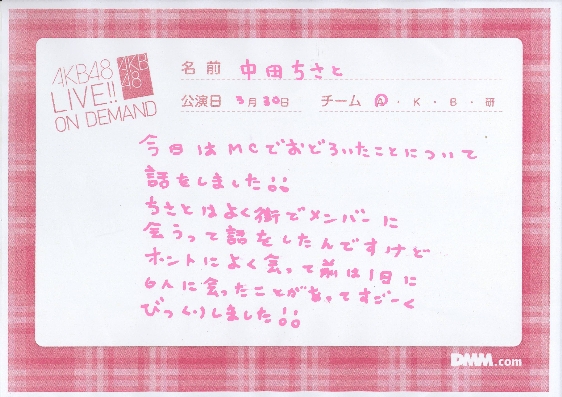 AKB48
LIVE!!
ON DEMAND
AKB
48
名前 中田ちさと
公演日 3月30日 チーム A・K・B・研
今日はMCでおどろいたことについて
話をしました!!
ちさとはよく街でメンバーに
会うって話をしたんですけど
ホントによく会って前は1日に
6人に会ったことがあってすごーく
びっくりしました!!
DMM.com